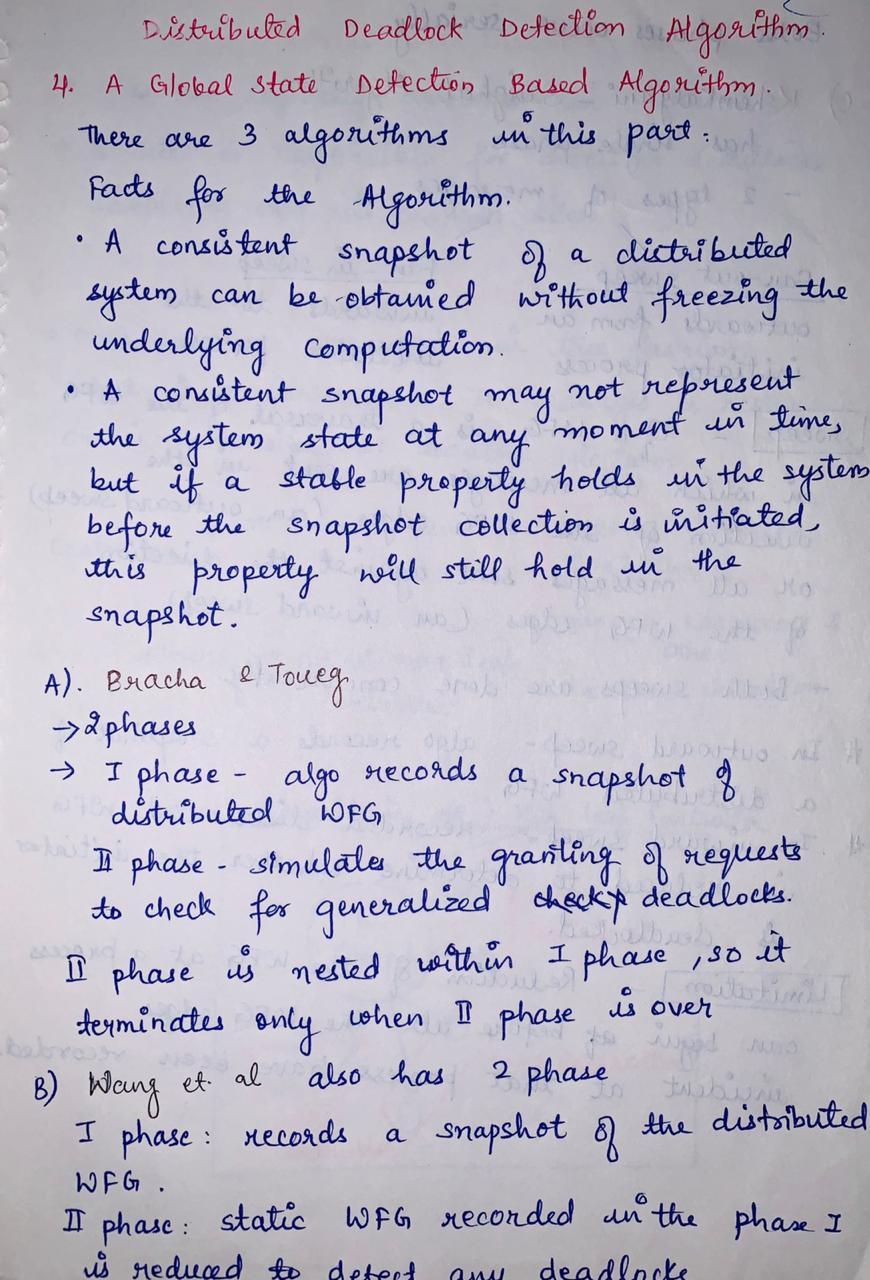 Distributed Deadlock Detection Algorithm.
4. A Global State Detection Based Algorithm.
There are 3 algorithms in this part:
Facts for the Algorithm.
• A consistent snapshot of a distributed
system can be obtained without freezing the
underlying computation.
• A consistent snapshot may not represent
the system state at any moment in time,
but if a stable property holds in the system
before the snapshot collection is initiated,
this property will still hold in the
snapshot.
A). Bracha & Toueg
→ 2 phases
→ I phase - algo records a snapshot of
distributed WFG
II phase - simulates the granting of requests
to check for generalized deadlocks.
II phase is nested within I phase, so it
terminates only when II phase is over
B) Wang et. al also has 2 phase
I phase: records a snapshot of the distributed
WFG.
II phase: static WFG recorded in the phase I
is reduced to detect any deadlocks